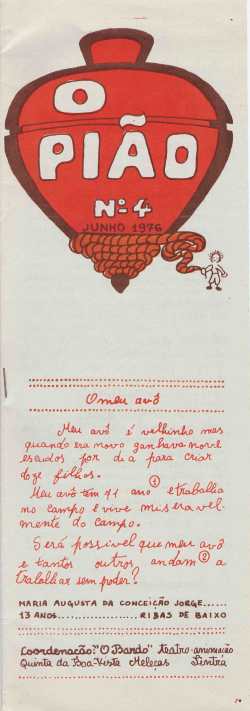 O
PIÃO
Nº 4
JUNHO 1976
O meu avô
Meu avô é velhinho mas
quando era novo ganhava nove
escudos por dia para criar
doze filhos.
Meu avô tem 71 ano ① e trabalha
no campo e vive miseravel-
mente do campo.
Será possível que meu avô
e tantos outros andam ② a
trabalhar sem poder?
MARIA AUGUSTA DA CONCEIÇÃO JORGE......
13 ANOS................RIBAS DE BAIXO
Coordenação: "O Bando" teatro-animação
Quinta da Boa-Vista Melecas Sintra